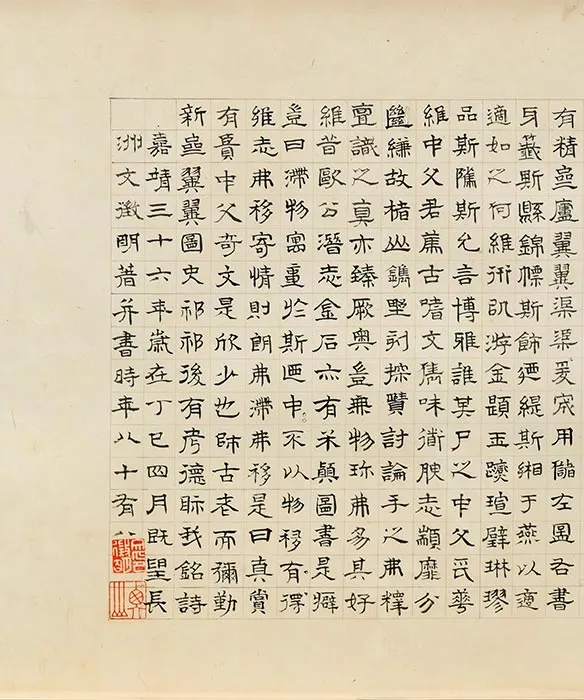 有精堂廬翼翼渠渠爰宬用儲左圖右書
牙籤斯縣錦幖斯飾迺緹斯緗于燕以適
適如之何維衎以游金題玉躞瑄璧琳璆
品斯隲斯允言博雅誰其尸之中父氏華
維中父君篤古嗜文雋味道腴志顓靡分
斷縑故楮山鐫野刻探賾討論手之弗釋
亶識之真亦臻厥奧豈無物珍弗易其好
維昔歐公潛志金石亦有米顛圖書是癖
豈曰滯物寓意於斯迺中不以物移有得
維志弗移寄情則朗弗滯弗移是曰真賞
有賁中父奇文是欣少也師古老而彌勤
新堂翼翼圖史祁祁後有考德眎我銘詩
嘉靖三十六年歲在丁巳四月既望長
洲文徵明著并書時年八十有八